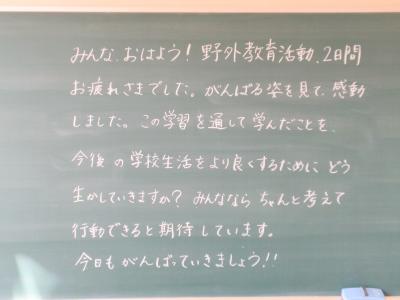 みんな、おはよう！野外教育活動、2日間
お疲れさまでした。がんばる姿を見て、感動
しました。この学習を通して学んだことを、
今後の学校生活をより良くするために どう
生かしていきますか？みんなならちゃんと考えて
行動できると期待しています。
今日もがんばっていきましょう!!